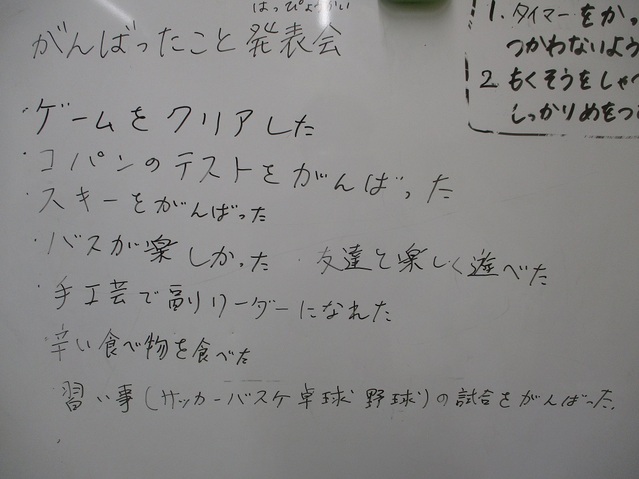 はっぴょうかい
がんばったこと発表会
・ゲームをクリアした
・コパンのテストをがんばった
・スキーをがんばった
・バスが楽しかった ・友達と楽しく遊べた
・手工芸で副リーダーになれた
・辛い食べ物を食べた
習い事(サッカーバスケ卓球野球)の試合をがんばった.
1.タイマーをかっ
つかわないよう
2.もくそうをしゃべ
しっかりめをつ